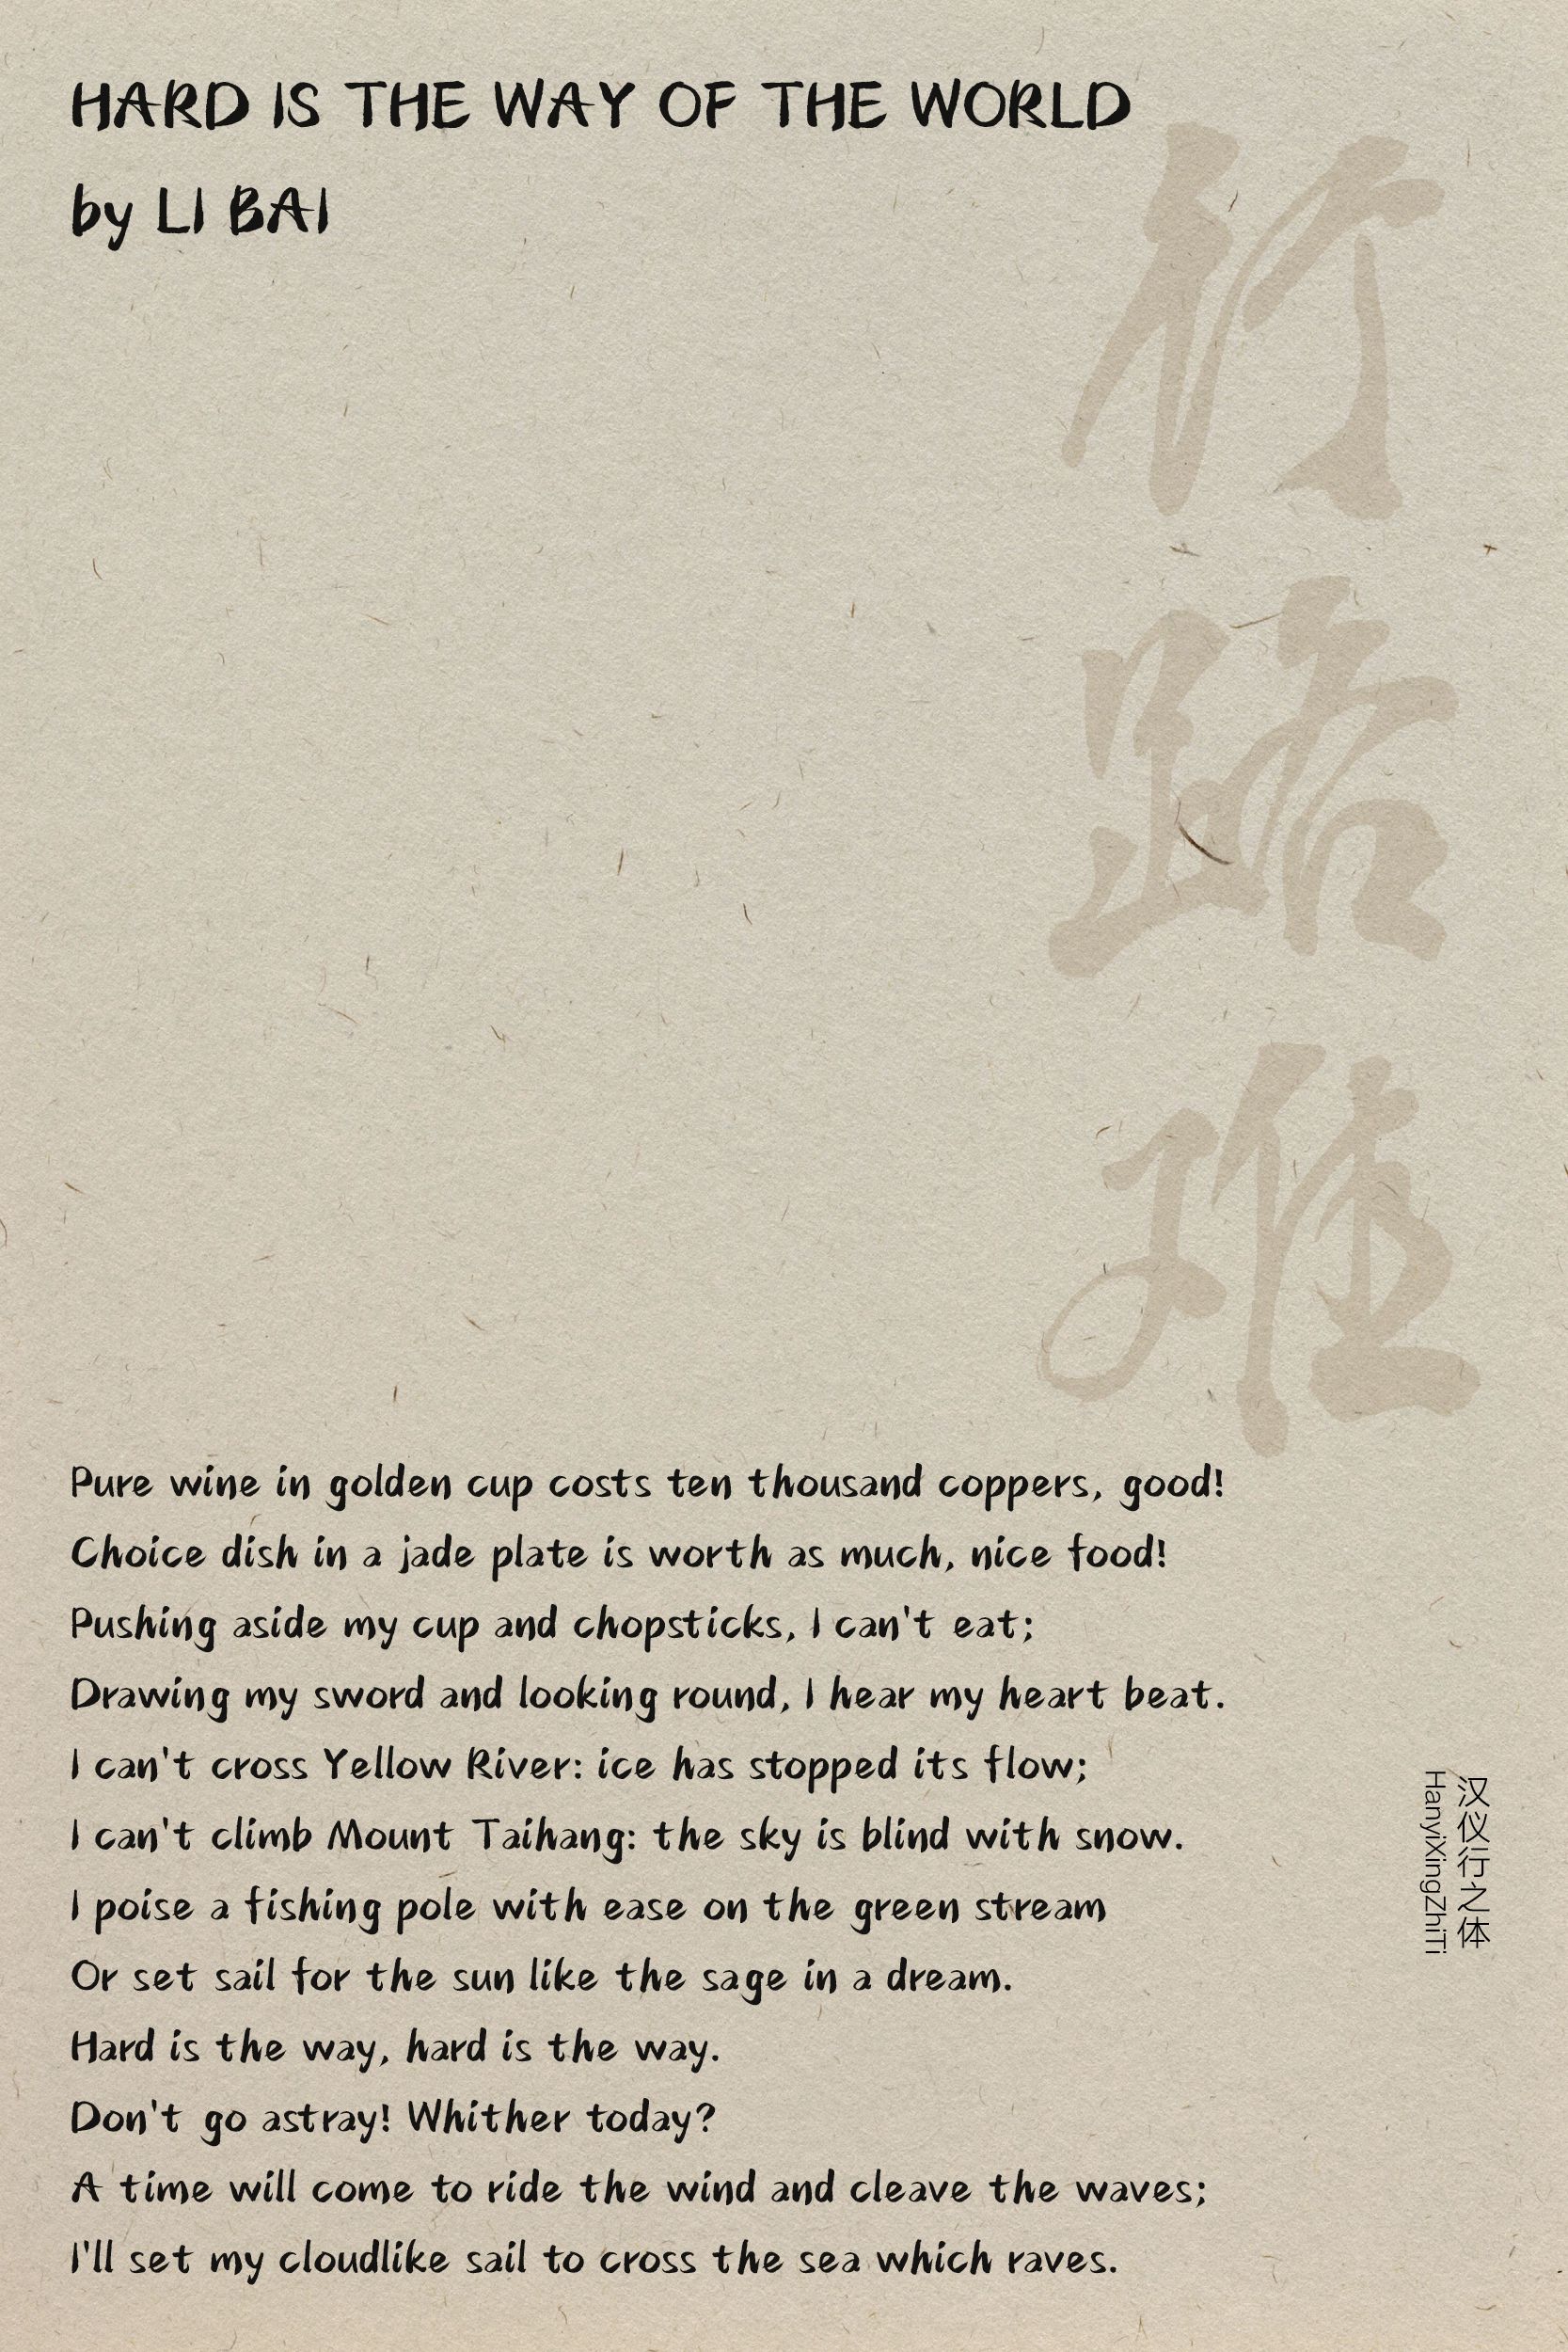 HARD IS THE WAY OF THE WORLD
by LI BAI
行路难
Pure wine in golden cup costs ten thousand coppers, good!
Choice dish in a jade plate is worth as much, nice food!
Pushing aside my cup and chopsticks, I can't eat;
Drawing my sword and looking round, I hear my heart beat.
I can't cross Yellow River: ice has stopped its flow;
I can't climb Mount Taihang: the sky is blind with snow.
I poise a fishing pole with ease on the green stream
Or set sail for the sun like the sage in a dream.
Hard is the way, hard is the way.
Don't go astray! Whither today?
A time will come to ride the wind and cleave the waves;
I'll set my cloudlike sail to cross the sea which raves.
汉仪行之体
HanyiXingZhiTi